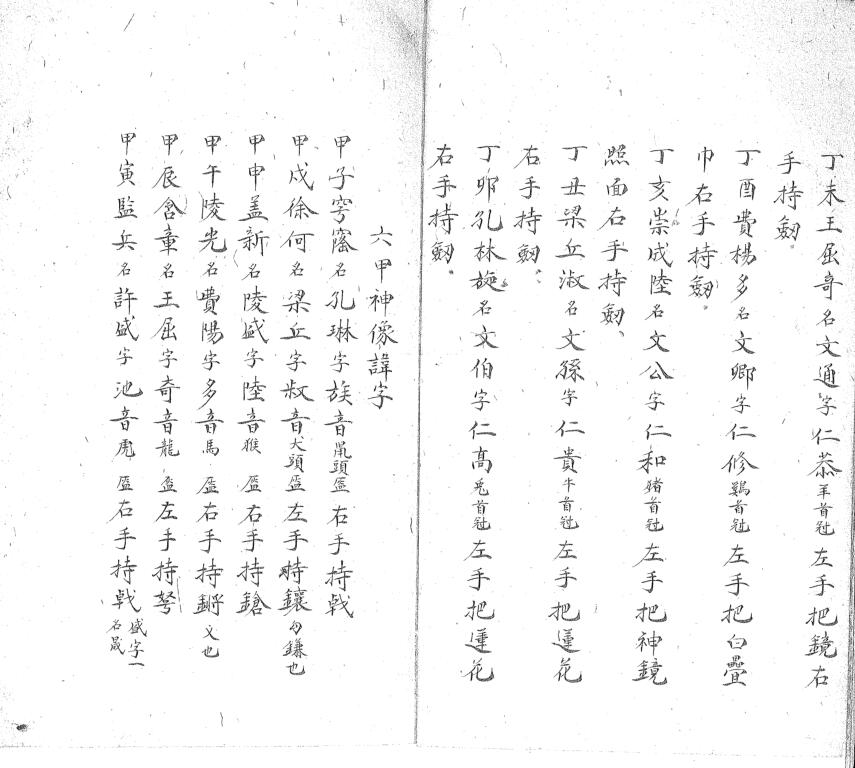 丁未王屈奇名文通字仁恭羊首冠左手把鏡右
手持劔。
丁酉費楊多名文卿字仁修鷄首冠左手把白疊
巾右手持劔。
丁亥崇成陸名文公字仁和猪首冠左手把神鏡
照面右手持劔、
丁丑梁丘淑名文孫字仁貴牛首冠左手把蓮花
右手持劔。
丁卯孔林旋名文伯字仁高兎首冠左手把蓮花
右手持劔。
六甲神像諱字
甲子穹窿名孔琳字族音鼠頭盔右手持戟
甲戌徐何名梁丘字叔音犬頭盔左手時鑲勾鎌也
甲申盖新名陵盛字陸音猴盔右手持鎗
甲午陵光名費陽字多音馬盔右手持鏘文也
甲辰含章名王屈字奇音龍盔左手持弩
甲寅監兵名許盛字池音虎盔右手持戟盛字一名晟